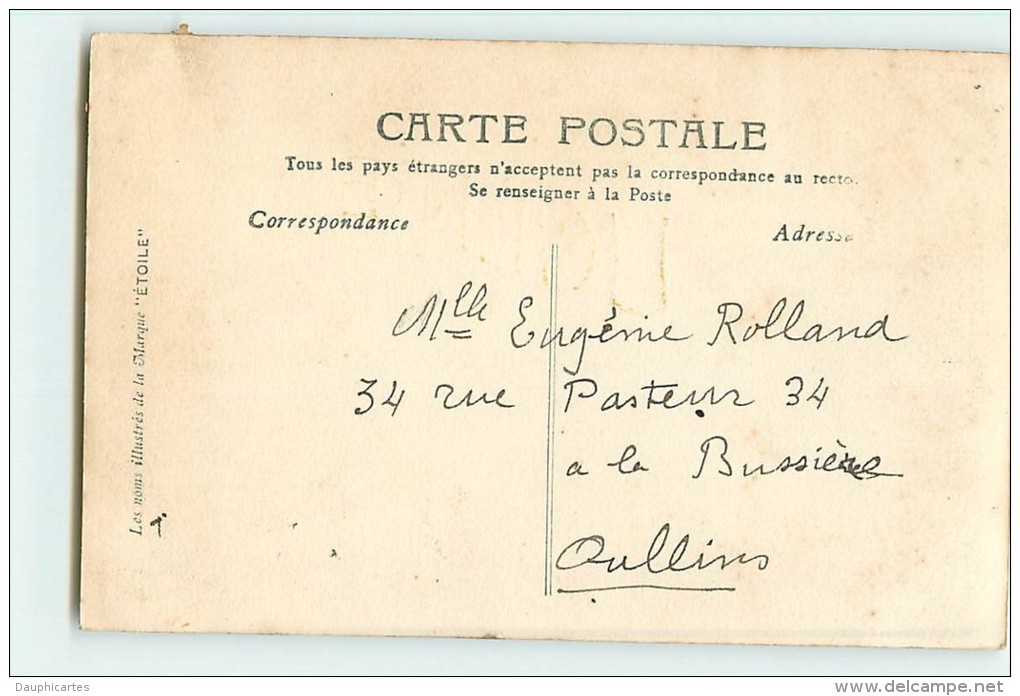 CARTE POSTALE
Tous les pays étrangers n'acceptent pas la correspondance au recto.
Se renseigner à la Poste
Correspondance
Adresse
Les noms illustrés de la Marque "ÉTOILE"
Mlle Eugénie Rolland
34 rue Pasteur 34
a la Bussière
Oullins
Dauphicartes
www.delcampe.net